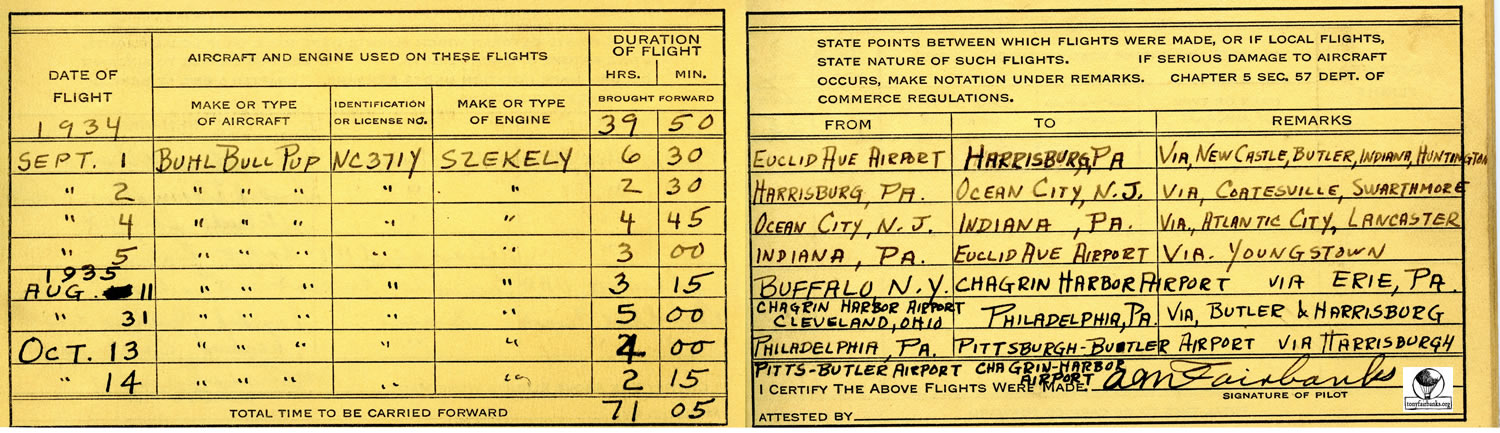 DATE OF FLIGHT
AIRCRAFT AND ENGINE USED ON THESE FLIGHTS
DURATION OF FLIGHT
HRS. MIN.
MAKE OR TYPE OF AIRCRAFT
IDENTIFICATION OR LICENSE NO.
MAKE OR TYPE OF ENGINE
BROUGHT FORWARD
1934 39 50
SEPT. 1 BUHL BULL PUP NC371Y SZEKELY 6 30
" 2 " " " " " 2 30
" 4 " " " " " 4 45
" 5 " " " " " 3 00
1935
AUG. 11 " " " " " 3 15
" 31 " " " " " 5 00
OCT. 13 " " " " " 4 00
" 14 " " " " " 2 15
TOTAL TIME TO BE CARRIED FORWARD 71 05
STATE POINTS BETWEEN WHICH FLIGHTS WERE MADE, OR IF LOCAL FLIGHTS,
STATE NATURE OF SUCH FLIGHTS. IF SERIOUS DAMAGE TO AIRCRAFT
OCCURS, MAKE NOTATION UNDER REMARKS. CHAPTER 5 SEC. 57 DEPT. OF
COMMERCE REGULATIONS.
FROM TO REMARKS
EUCLID AVE AIRPORT HARRISBURG, PA VIA, NEW CASTLE, BUTLER, INDIANA, HUNTINGTON
HARRISBURG, PA. OCEAN CITY, N.J. VIA, COATESVILLE, SWARTHMORE
OCEAN CITY, N.J. INDIANA, PA. VIA, ATLANTIC CITY, LANCASTER
INDIANA, PA. EUCLID AVE AIRPORT VIA. YOUNGSTOWN
BUFFALO N.Y. CHAGRIN HARBOR AIRPORT VIA ERIE, PA.
CHAGRIN HARBOR AIRPORT
CLEVELAND, OHIO PHILADELPHIA, PA. VIA, BUTLER & HARRISBURG
PHILADELPHIA, PA. PITTSBURGH-BUTLER AIRPORT VIA HARRISBURGH
PITTS-BUTLER AIRPORT CHAGRIN-HARBOR AIRPORT
I CERTIFY THE ABOVE FLIGHTS WERE MADE. A M Fairbanks
SIGNATURE OF PILOT
ATTESTED BY
tonyfairbanks.org